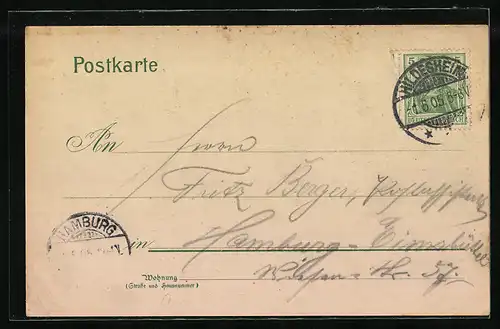 Postkarte
5
HILDESHEIM
1.6.05
An Herrn
Fritz Berger,
HAMBURG
in Hamburg-Eimsbüttel
Wohnung
(Straße und Hausnummer)
Wiesen-Str. 57